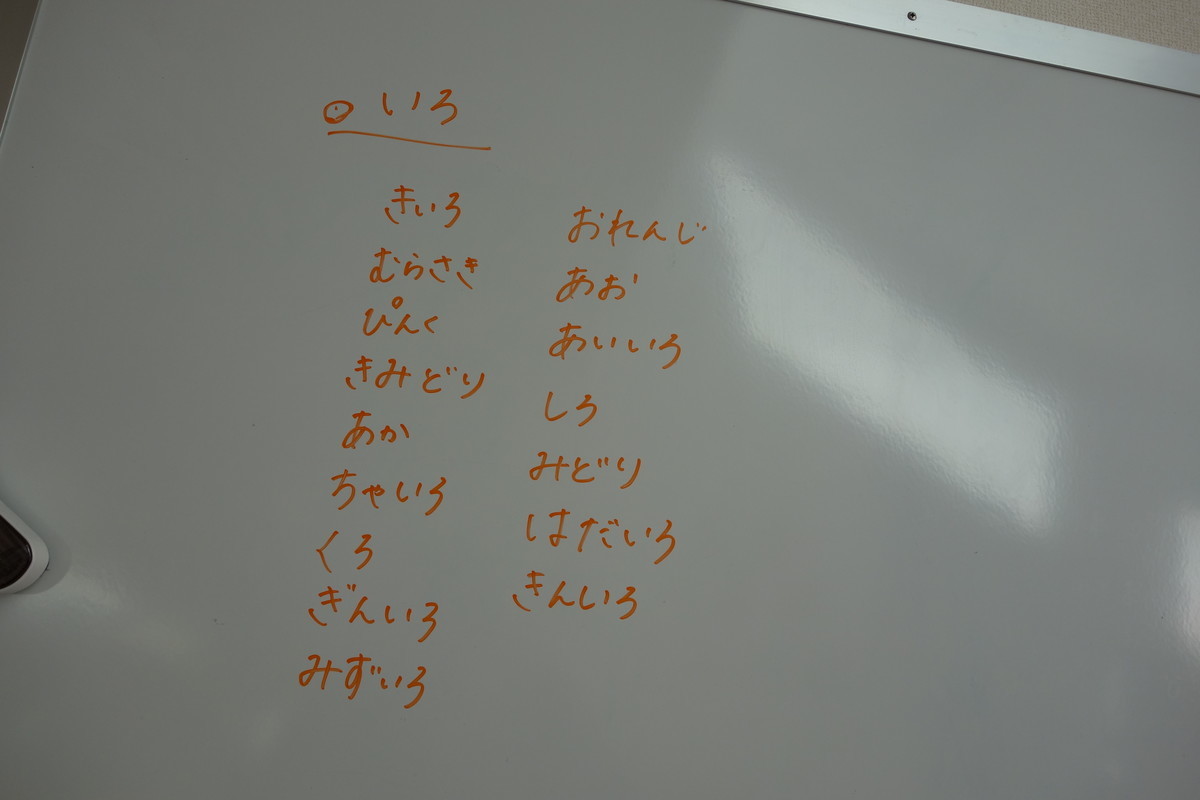 ◎ いろ
きいろ
むらさき
ぴんく
きみどり
あか
ちゃいろ
くろ
ぎんいろ
みずいろ
おれんじ
あお
あいいろ
しろ
みどり
はだいろ
きんいろ